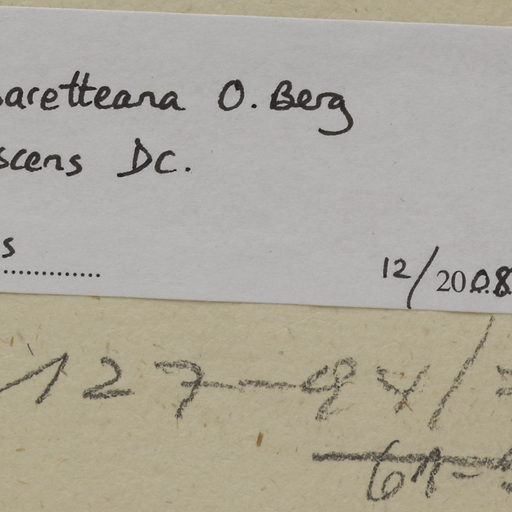 aretteana O. Berg
scens DC.
s
12/2008
127-94/
61-